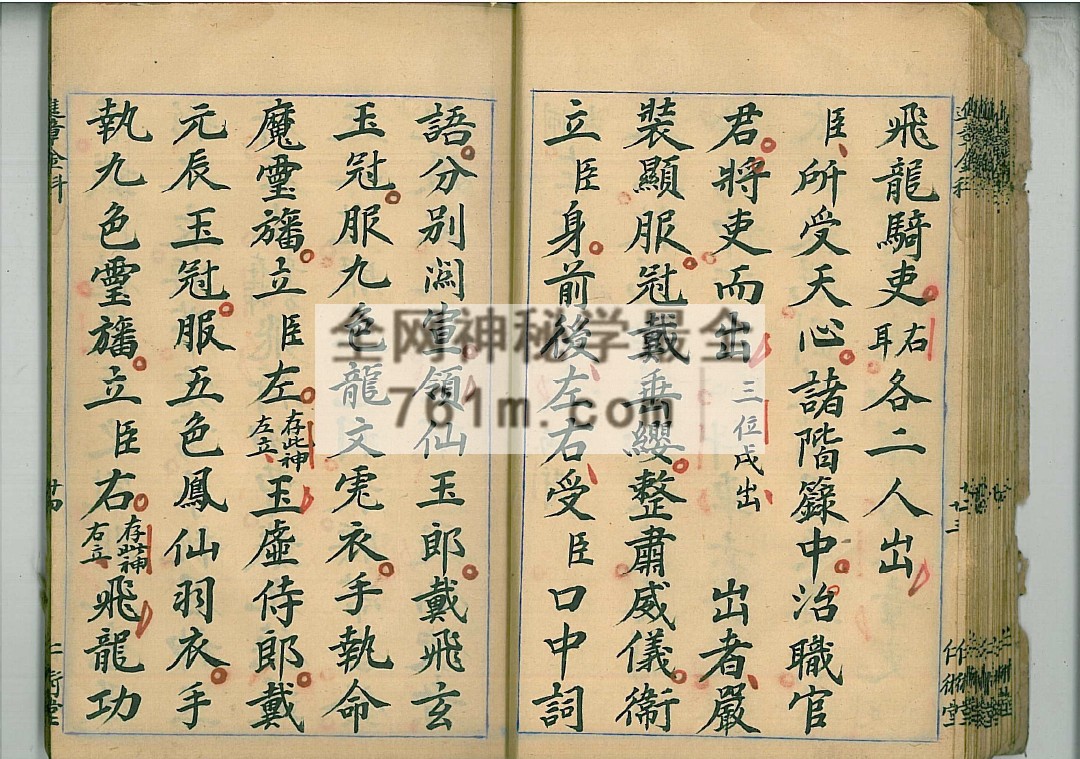 飛龍騎吏右耳各二人出
臣所受天心諸階籙中治職官
君將吏而出三位戌出 出者嚴
裝顯服冠戴垂纓整肅威儀衛
立臣身前後左右受臣口中詞
語分別関宣領仙玉郎戴飛玄
玉冠服九色龍文𮓗衣手執命
魔靈旛立臣左存此神左立玉虛侍郎戴
元辰玉冠服五色鳳仙羽衣手
執九色靈旛立臣右存此神右立飛龍功
廿三
仁術堂
廿四
仁術堂
全网神秘学最全
761m.com